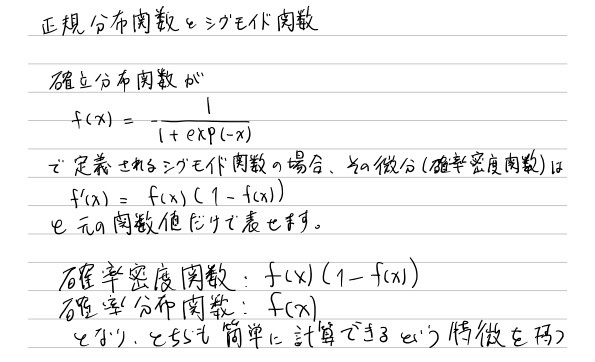 正規分布関数とシグモイド関数
確立分布関数が
f(x) = 1 / (1 + exp(-x))
で定義されるシグモイド関数の場合、その微分(確率密度関数)は
f'(x) = f(x)(1 - f(x))
と元の関数値だけで表せます。
確率密度関数: f(x)(1-f(x))
確率分布関数: f(x)
となり、どちらも簡単に計算できるという特徴を持つ